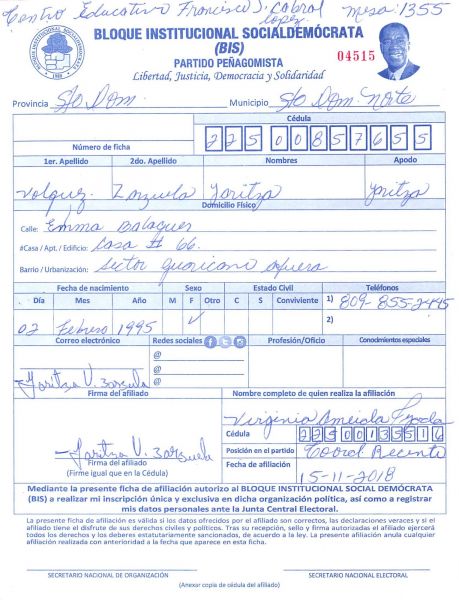 Centro Educativo Francisco J. Cabral Lopez Mesa: 1355
BLOQUE INSTITUCIONAL SOCIALDEMÓCRATA
(BIS)
PARTIDO PEÑAGOMISTA
04515
Libertad, Justicia, Democracia y Solidaridad
Provincia Sto Dom. Municipio Sto Dom. Norte
Cédula
Número de ficha 225 0085765 5
1er. Apellido 2do. Apellido Nombres Apodo
Volquez Zorzuela Yoritza Yoritza
Domicilio Físico
Calle: Emma Balaguer
#Casa / Apt. / Edificio: Casa # 66.
Barrio / Urbanización: Sector Guaricano afuera
Fecha de nacimiento Sexo Estado Civil Teléfonos
Día Mes Año M F Otro C S Conviviente 1) 809-855-2445
02 Febrero 1995 2)
Correo electrónico Redes sociales Profesión/Oficio Conocimientos especiales
@
@
@
Yoritza V. Zorzuela
Firma del afiliado Nombre completo de quien realiza la afiliación
Virginia
Cédula 225 0013351 6
Yoritza V. Zorzuela Posición en el partido Coord Recinto
Firma del afiliado Fecha de afiliación
(Firme igual que en la Cédula) 15-11-2018
Mediante la presente ficha de afiliación autorizo al BLOQUE INSTITUCIONAL SOCIAL DEMÓCRATA
(BIS) a realizar mi inscripción única y exclusiva en dicha organización política, así como a registrar
mis datos personales ante la Junta Central Electoral.
La presente ficha de afiliación es válida si los datos ofrecidos por el afiliado son correctos, las declaraciones veraces y si el
afiliado tiene el disfrute de sus derechos civiles y políticos. Tras su recepción, sello y firma autorizadas el afiliado ejercerá
todos los derechos y los deberes estatutariamente sancionados, de acuerdo a la ley. La presente afiliación anula cualquier
afiliación realizada con anterioridad a la fecha que aparece en esta ficha.
SECRETARIO NACIONAL DE ORGANIZACIÓN SECRETARIO NACIONAL ELECTORAL
(Anexar copia de cédula del afiliado)